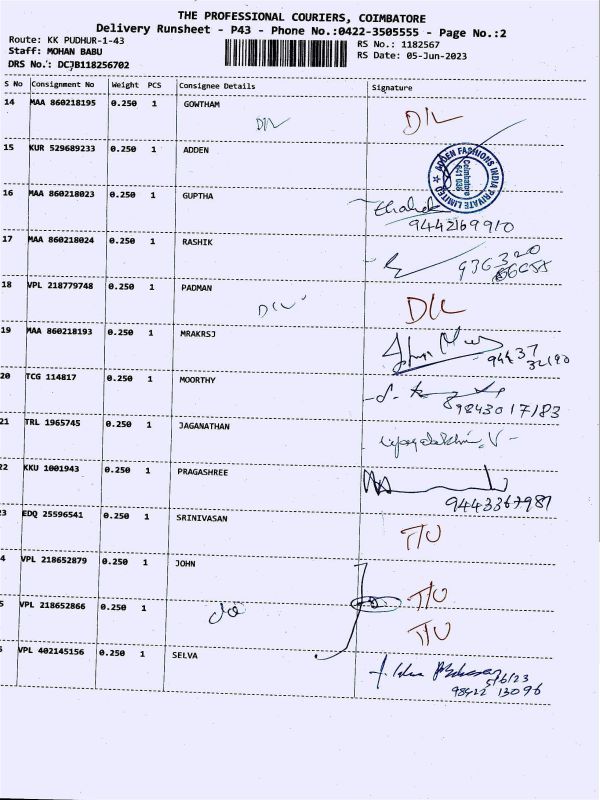 THE PROFESSIONAL COURIERS, COIMBATORE
Delivery Runsheet - P43 - Phone No.:0422-3505555 - Page No.:2
Route: KK PUDHUR-1-43 RS No.: 1182567
Staff: MOHAN BABU RS Date: 05-Jun-2023
DRS No.: DCJB118256702
S No Consignment No Weight PCS Consignee Details Signature
14 MAA 860218195 0.250 1 GOWTHAM
D/L D/L
15 KUR 529689233 0.250 1 ADDEN
ADDEN FASHIONS INDIA PRIVATE LIMITED
Coimbatore
641 038
16 MAA 860218023 0.250 1 GUPTHA
9442169910
17 MAA 860218024 0.250 1 RASHIK
18 VPL 218779748 0.250 1 PADMAN
D/L D/L
19 MAA 860218193 0.250 1 MRAKRSJ
94437
32190
20 TCG 114817 0.250 1 MOORTHY
9843017183
21 TRL 1965745 0.250 1 JAGANATHAN
Vijayalakshmi. V -
22 KKU 1001943 0.250 1 PRAGASHREE
9443367981
3 EDQ 25596541 0.250 1 SRINIVASAN
T/U
4 VPL 218652879 0.250 1 JOHN
T/U
5 VPL 218652866 0.250 1 do
T/U
VPL 402145156 0.250 1 SELVA
5/6/23
98422 13096